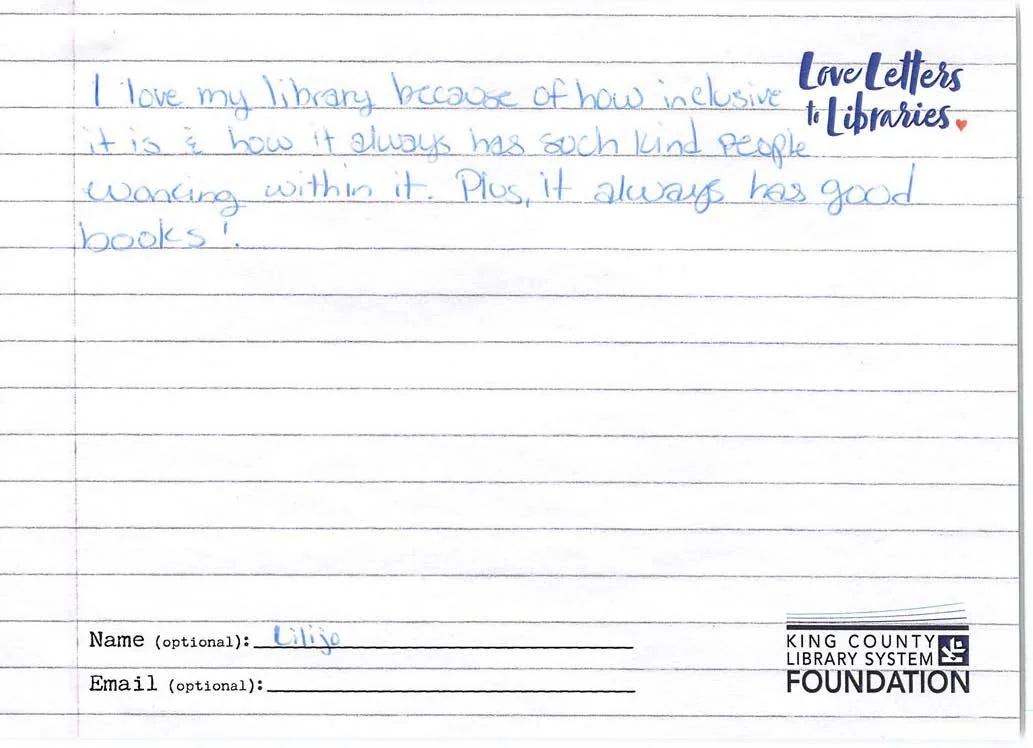 I love my library because of how inclusive
it is & how it always has such kind people
working within it. Plus, it always has good
books!
Love Letters
to Libraries
Name (optional): Lilijo
Email (optional):
KING COUNTY
LIBRARY SYSTEM
FOUNDATION